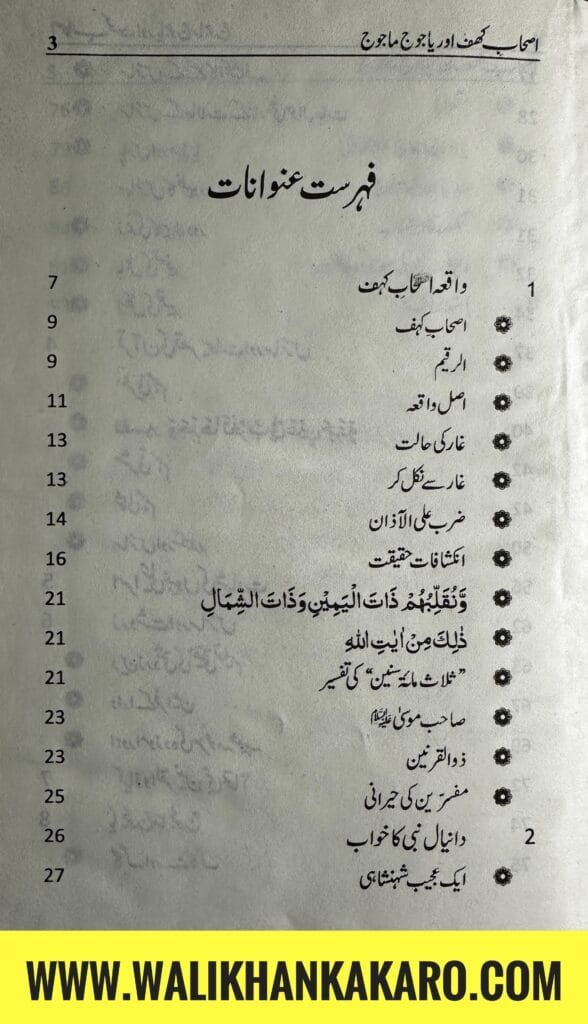 اصحاب کھف اور یاجوج ماجوج 3
فہرست عنوانات
1 واقعہ اصحاب کہف 7
اصحاب کہف 9
الرقیم 9
اصل واقعہ 11
غار کی حالت 13
غار سے نکل کر 13
ضرب علی الآذان 14
انکشافات حقیقت 16
وَّنُقَلِّبُهُمْ ذَاتَ الْيَمِيْنِ وَذَاتَ الشِّمَالِ 21
ذٰلِكَ مِنْ اٰيٰتِ اللّٰهِ 21
”ثلاث مائۃ سنین“ کی تفسیر 21
صاحب موسیٰ علیہ السلام 23
ذوالقرنین 23
مفسرّین کی حیرانی 25
2 دانیال نبی کا خواب 26
ایک عجیب شہنشاہی 27
WWW.WALIKHANKAKARO.COM